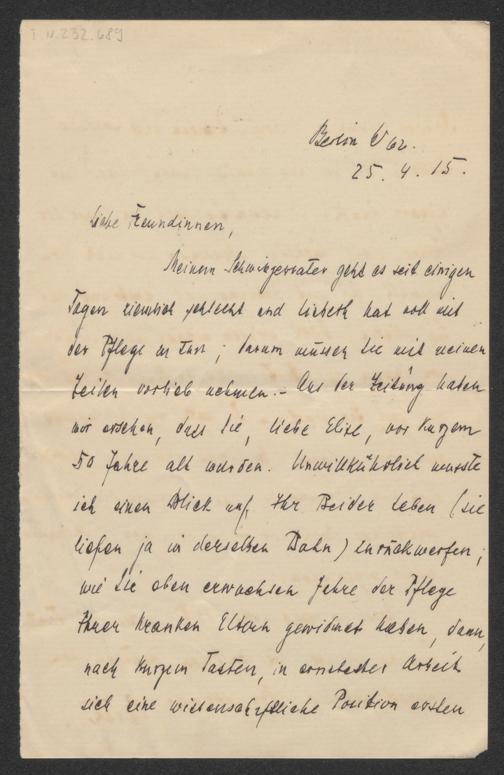 I.N.232.689
Berlin W 62.
25. 4. 15.
Liebe Freundinnen,
Meinem Schwiegervater geht es seit einigen
Tagen ziemlich schlecht und Lisbeth hat voll mit
der Pflege zu tun; darum müssen Sie mit meinen
Zeilen vorlieb nehmen.– Aus der Zeitung haben
wir ersehen, dass Sie, liebe Elise, vor Kurzem
50 Jahre alt wurden. Unwillkührlich musste
ich einen Blick auf Ihr Beider Leben (sie
liefen ja in derselben Bahn) zurückwerfen;
wie Sie eben erwachsen Jahre der Pflege
Ihrer kranken Eltern gewidmet haben, dann,
nach kurzem Tasten, in ernstester Arbeit
sich eine wissenschaftliche Position ersten